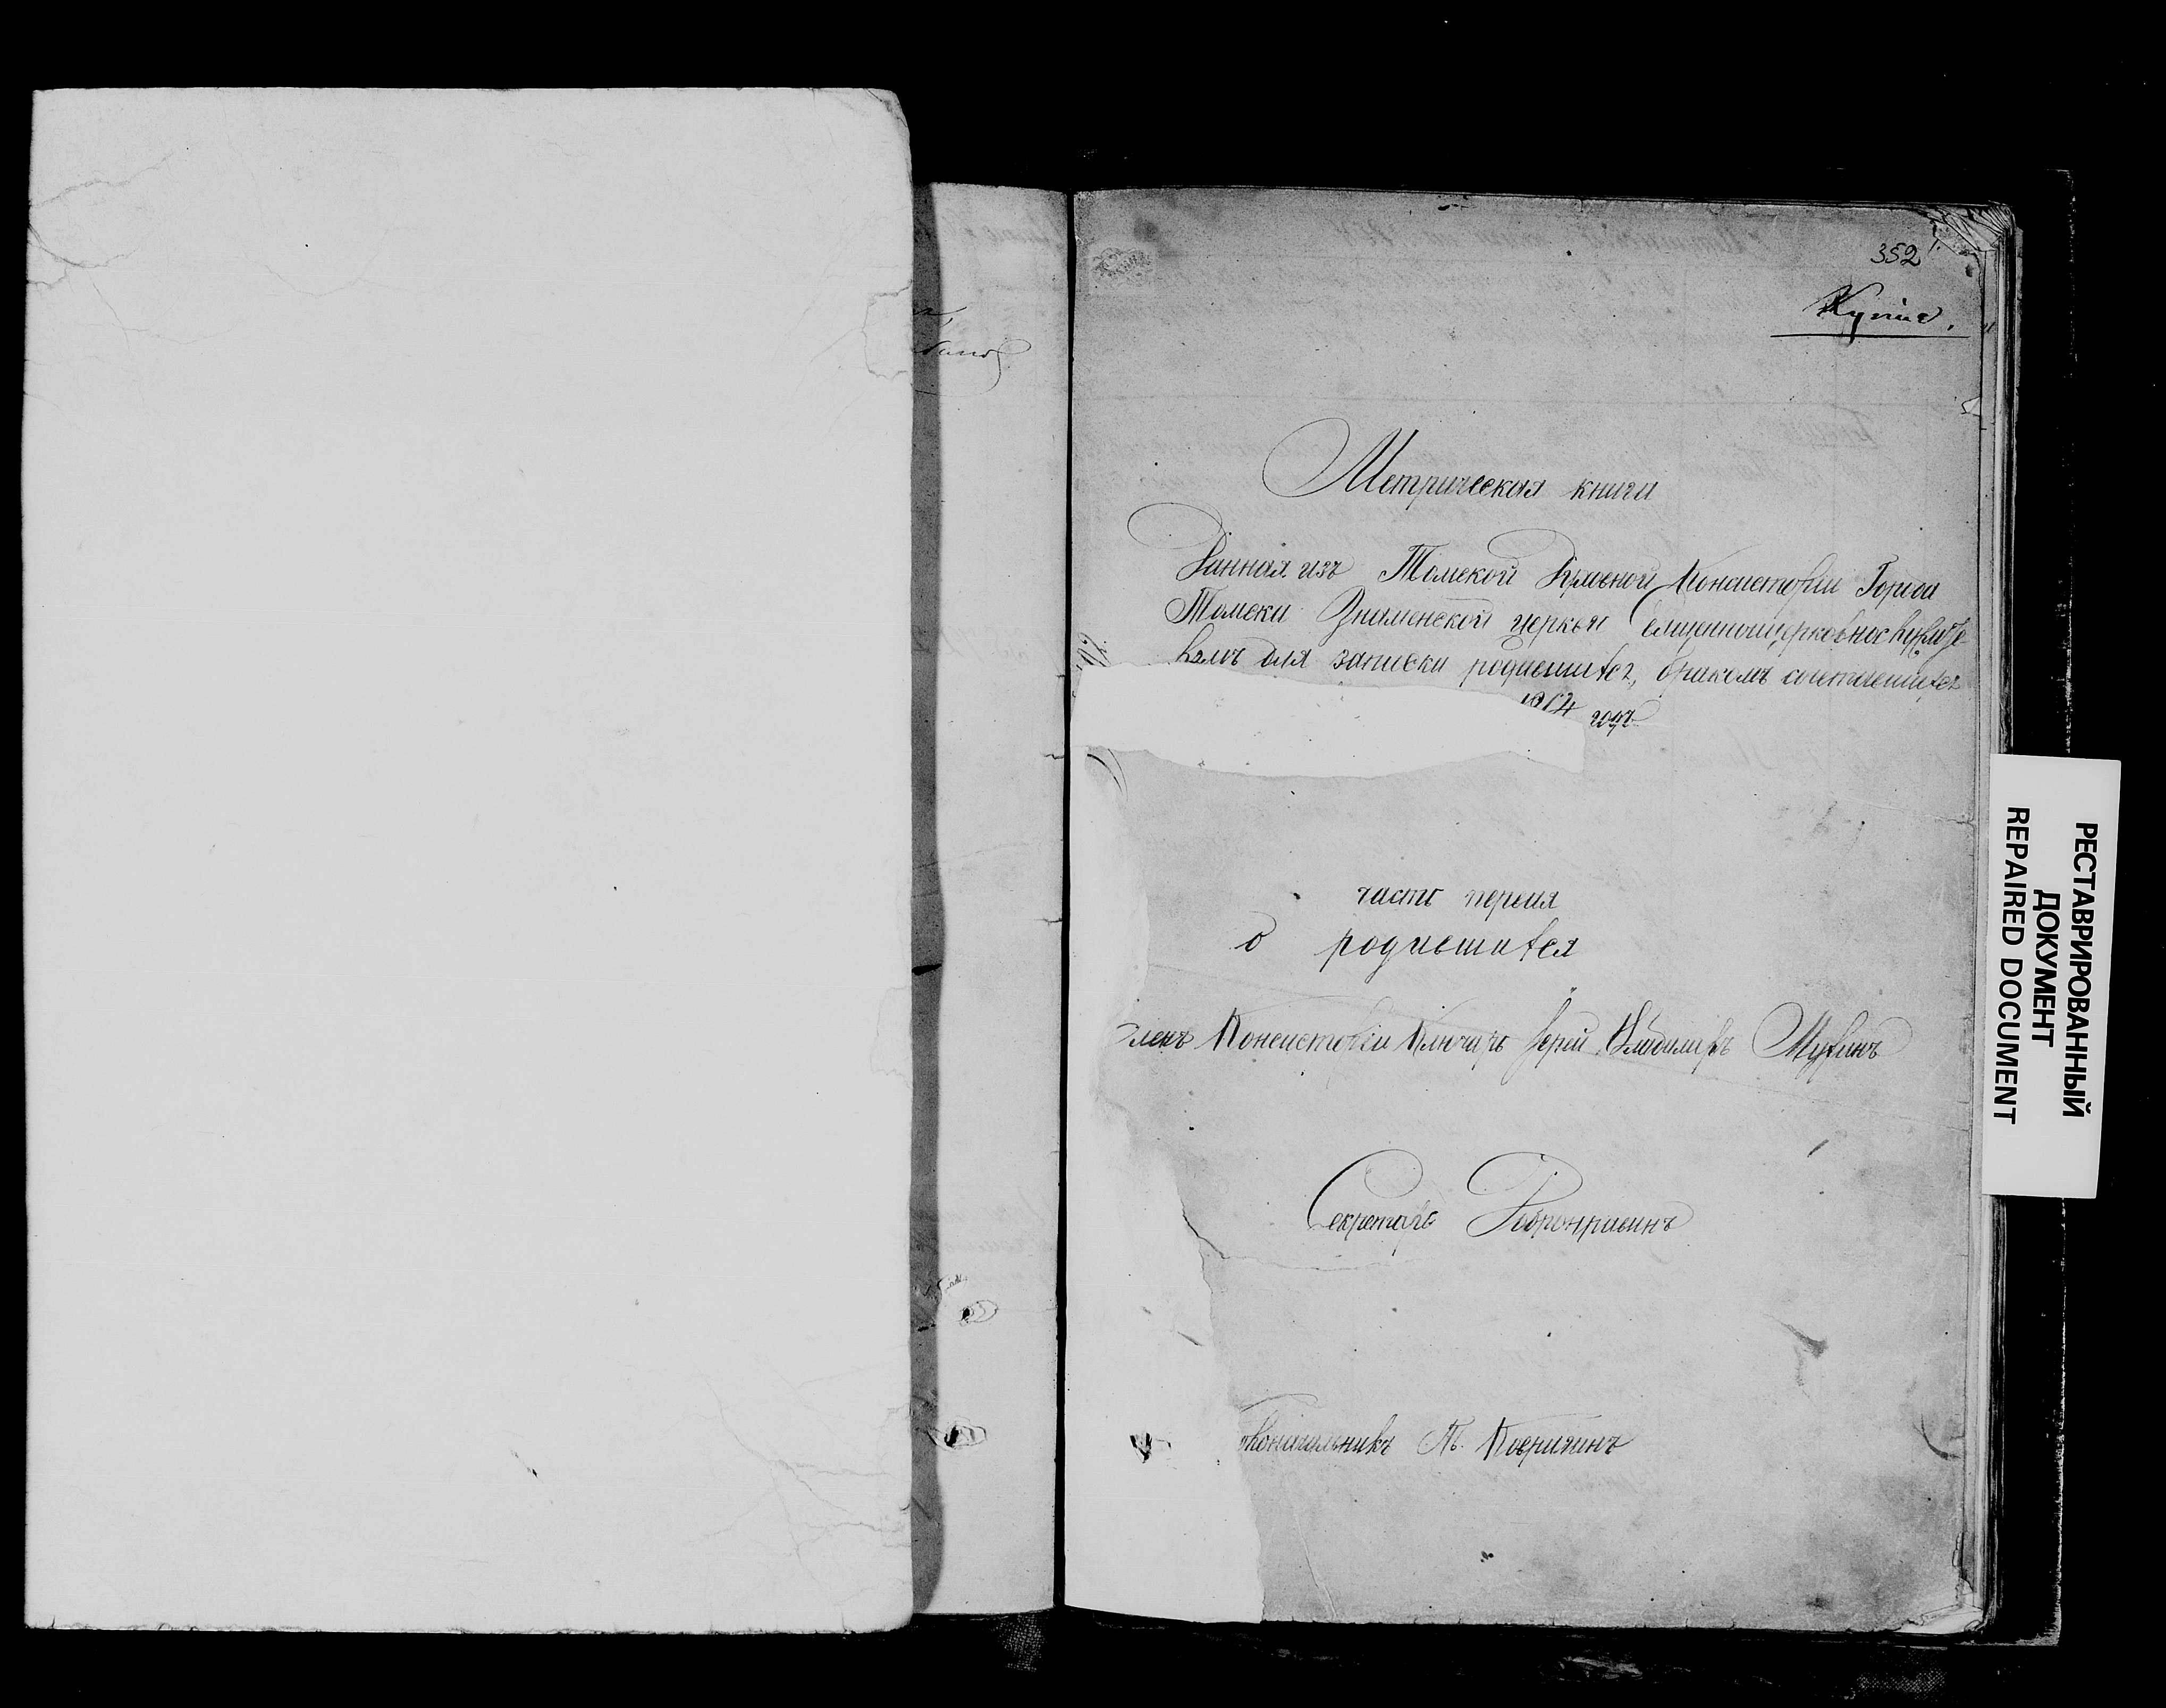 352
1.
Копія.
Метрическая книга
Данная изъ Томской Духовной Консисторіи Города
Томска Знаменской церкви Священноцерковнослужите-
лямъ для записки родившихся, бракомъ сочетавшихся
1864 годъ
часть первая
о родившихся
Членъ Консисторіи Ключарь Іерей Владиміръ Мухинъ
Секретарь Добронравинъ
околоначальникъ П.
РЕСТАВРИРОВАННЫЙ
ДОКУМЕНТ
REPAIRED DOCUMENT